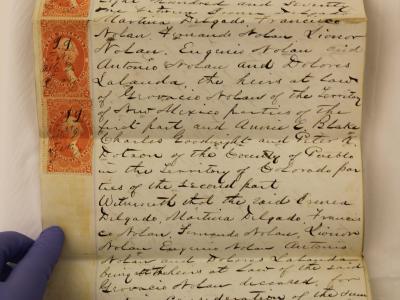 Eight Hundred and Seventy
Martina Delgado, Francisco
Nolan, Fernando Nolan, Livior
Nolan, Eugenio Nolan and
Antonio Nolan and Dolores
Lalanda, the heirs at Law
of Gervacio Nolan of the Territory
of New Mexico parties of the
first part, and Alvice C. Blake
Charles Goodnight and Peter K
Dotson of the County of Pueblo
in the Territory of Colorado par
ties of the Second part
Witnesseth that the said
Delgado, Martina Delgado, Francis
co Nolan, Fernando Nolan, Livior
Nolan Eugenio Nolan Antonio
Nolan and Dolores Lalanda
being all the heirs at Law of the said
Gervacio Nolan deceased, for
Consideration of the Sum